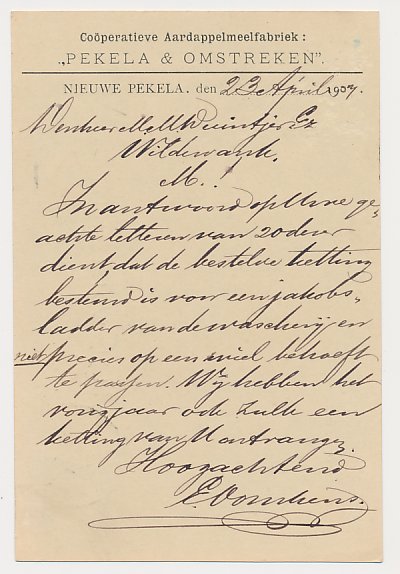 Coöperatieve Aardappelmeelfabriek:
„PEKELA & OMSTREKEN”.
NIEUWE PEKELA, den 23 April 1907.
Den heer M.M. Duintjer Cz
Wildervank.
M.
In antwoord op Uwe ge-
achte letteren van 20 dezer
dient, dat de bestelde ketting
bestemd is voor een jakobs-
ladder van de wascherij en
niet precies op een wiel behoeft
te passen. Wij hebben het
vorig jaar ook zulk een
ketting van U ontvangen.
Hoogachtend